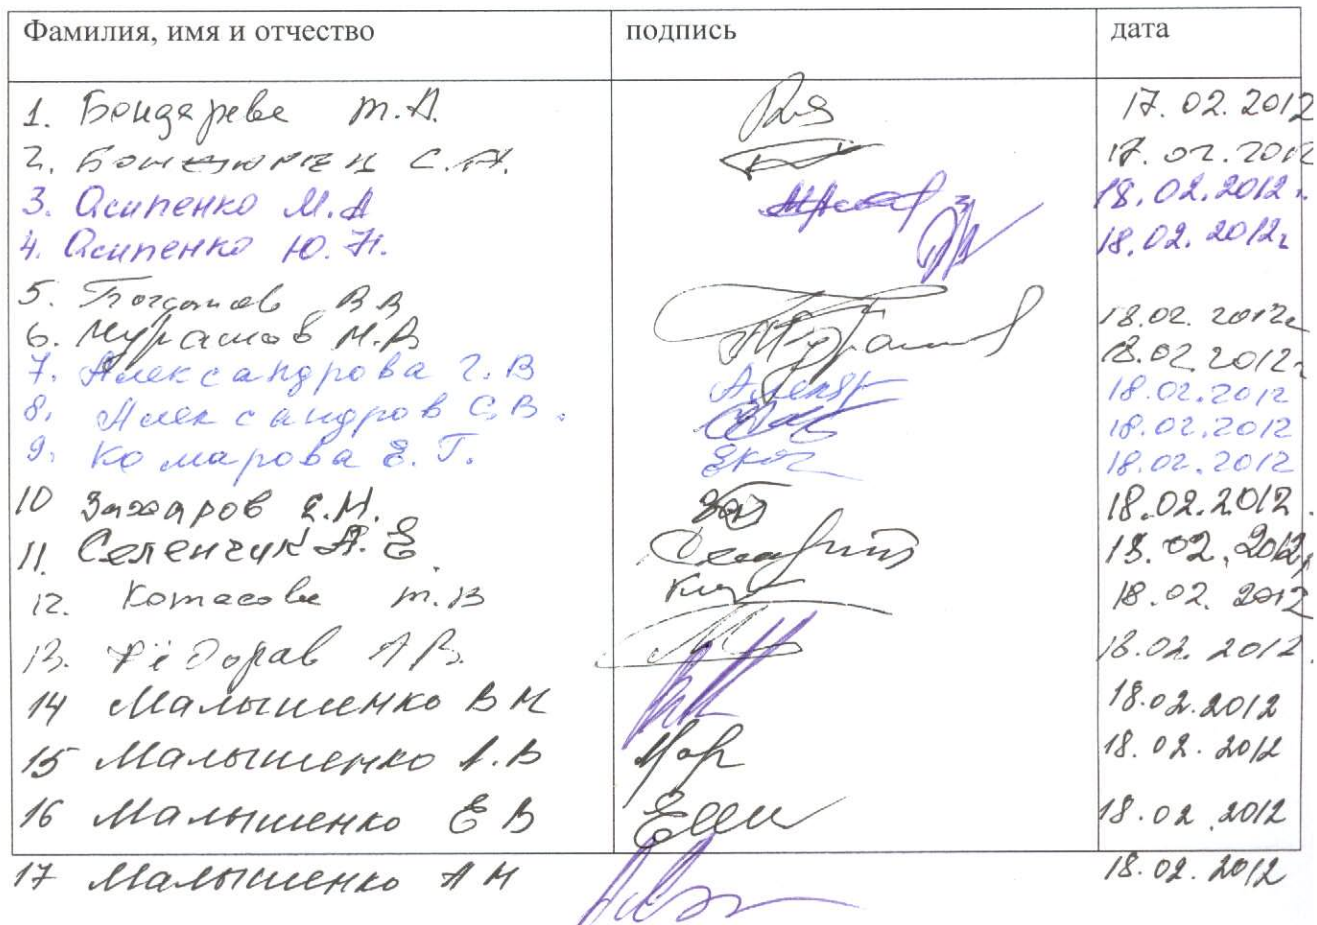 Фамилия, имя и отчество подпись дата
1. Бондарева Т.А. 17.02.2012
2. С.А. 17.02.2012
3. Осипенко М.А 18.02.2012г.
4. Осипенко Ю.Н. 18.02.2012г
5. Богданов В В 18.02.2012г
6. Мурашов М.В 18.02.2012г
7. Александрова Г.В 18.02.2012
8. Александров С.В. 18.02.2012
9. Комарова Е.Г. 18.02.2012
10 Захаров Е.М. 18.02.2012.
11. Селенчук А.Е. 18.02.2012г
12. Котасова Т.В 18.02.2012
13. Фёдорав А В. 18.02.2012.
14 Малышенко В Н 18.02.2012
15 Малышенко А.В 18.02.2012
16 Малышенко Е В 18.02.2012
17 Малышенко А Н 18.02.2012